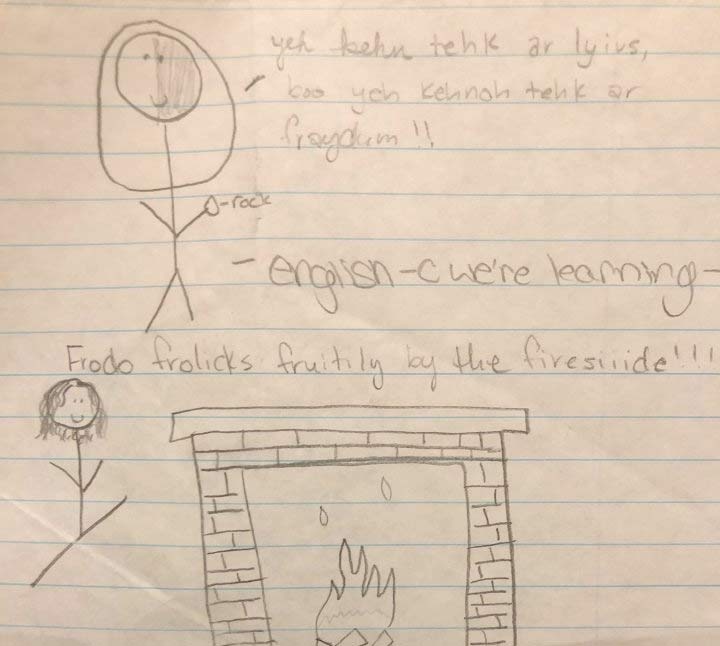 yeh kehn tehk ar lyivs,
boo yeh kehnoh tehk ar
fraydum!!
-rock
- english - c we're learning -
Frodo frolicks fruitily by the firesiiide!!!